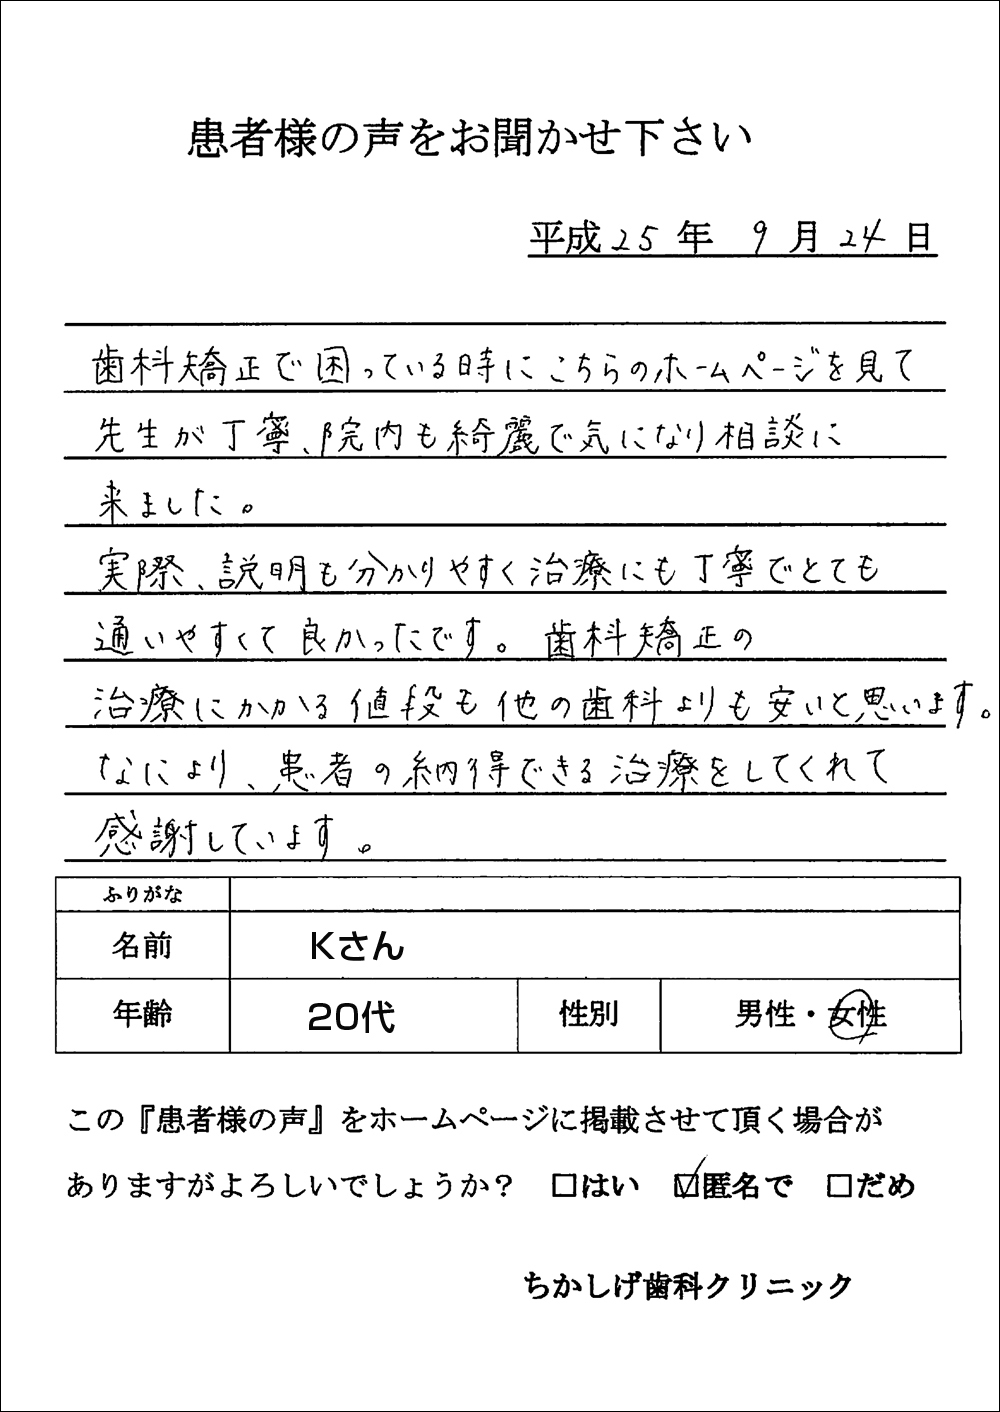 患者様の声をお聞かせ下さい
平成25年 9月24日
歯科矯正で困っている時にこちらのホームページを見て
先生が丁寧、院内も綺麗で気になり相談に
来ました。
実際、説明も分かりやすく治療にも丁寧でとても
通いやすくて良かったです。歯科矯正の
治療にかかる値段も他の歯科よりも安いと思います。
なにより、患者の納得できる治療をしてくれて
感謝しています。
ふりがな
名前 Kさん
年齢 20代 性別 男性・女性
この『患者様の声』をホームページに掲載させて頂く場合が
ありますがよろしいでしょうか？ □はい ☑匿名で □だめ
ちかしげ歯科クリニック